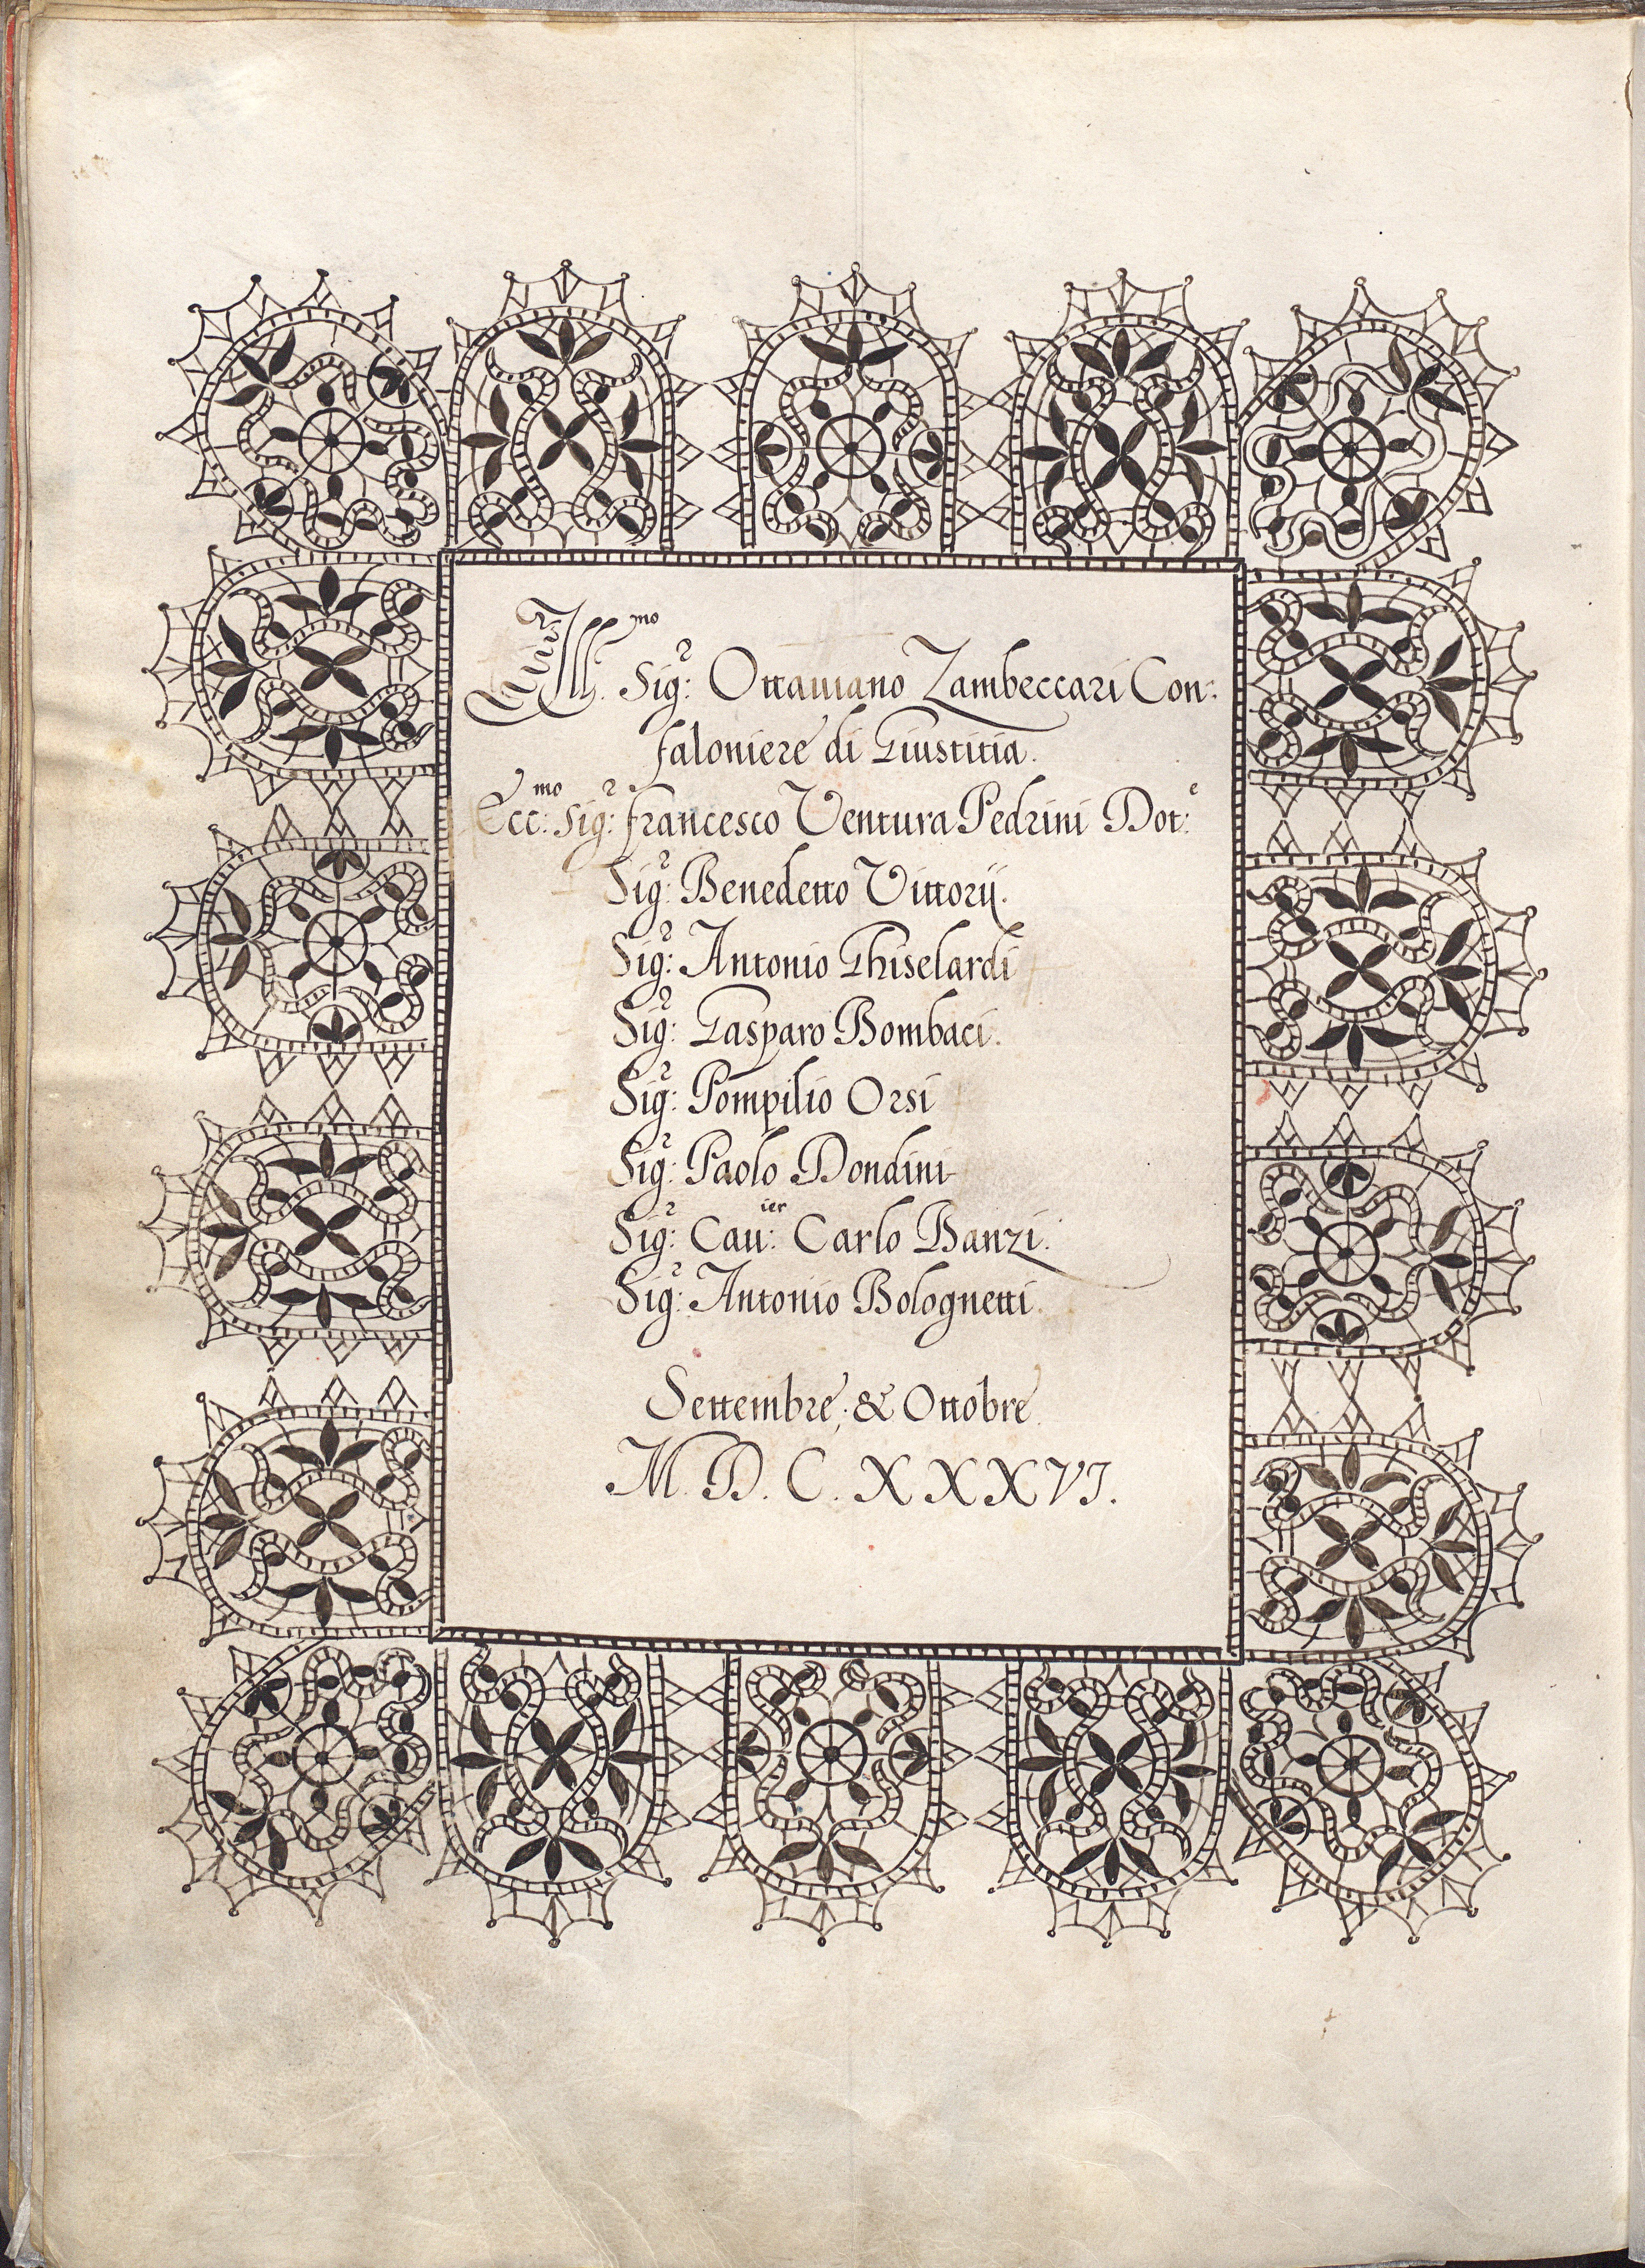 Ill:mo Sig:r Ottauiano Zambeccari Con:
faloniere di Giustitia.
Ecc:mo Sig:r Francesco Ventura Pedrini Dot:e
Sig:r Benedetto Vittorij.
Sig:r Antonio Ghiselardi
Sig:r Gasparo Bombaci.
Sig:r Pompilio Orsi
Sig:r Paolo Dondini
Sig:r Cau:ier Carlo Banzi.
Sig:r Antonio Bolognetti.
Settembre, & Ottobre.
M. D. C. XXXVI.